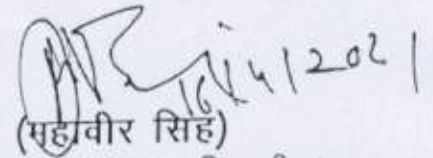 16/4/2021
(महावीर सिंह)